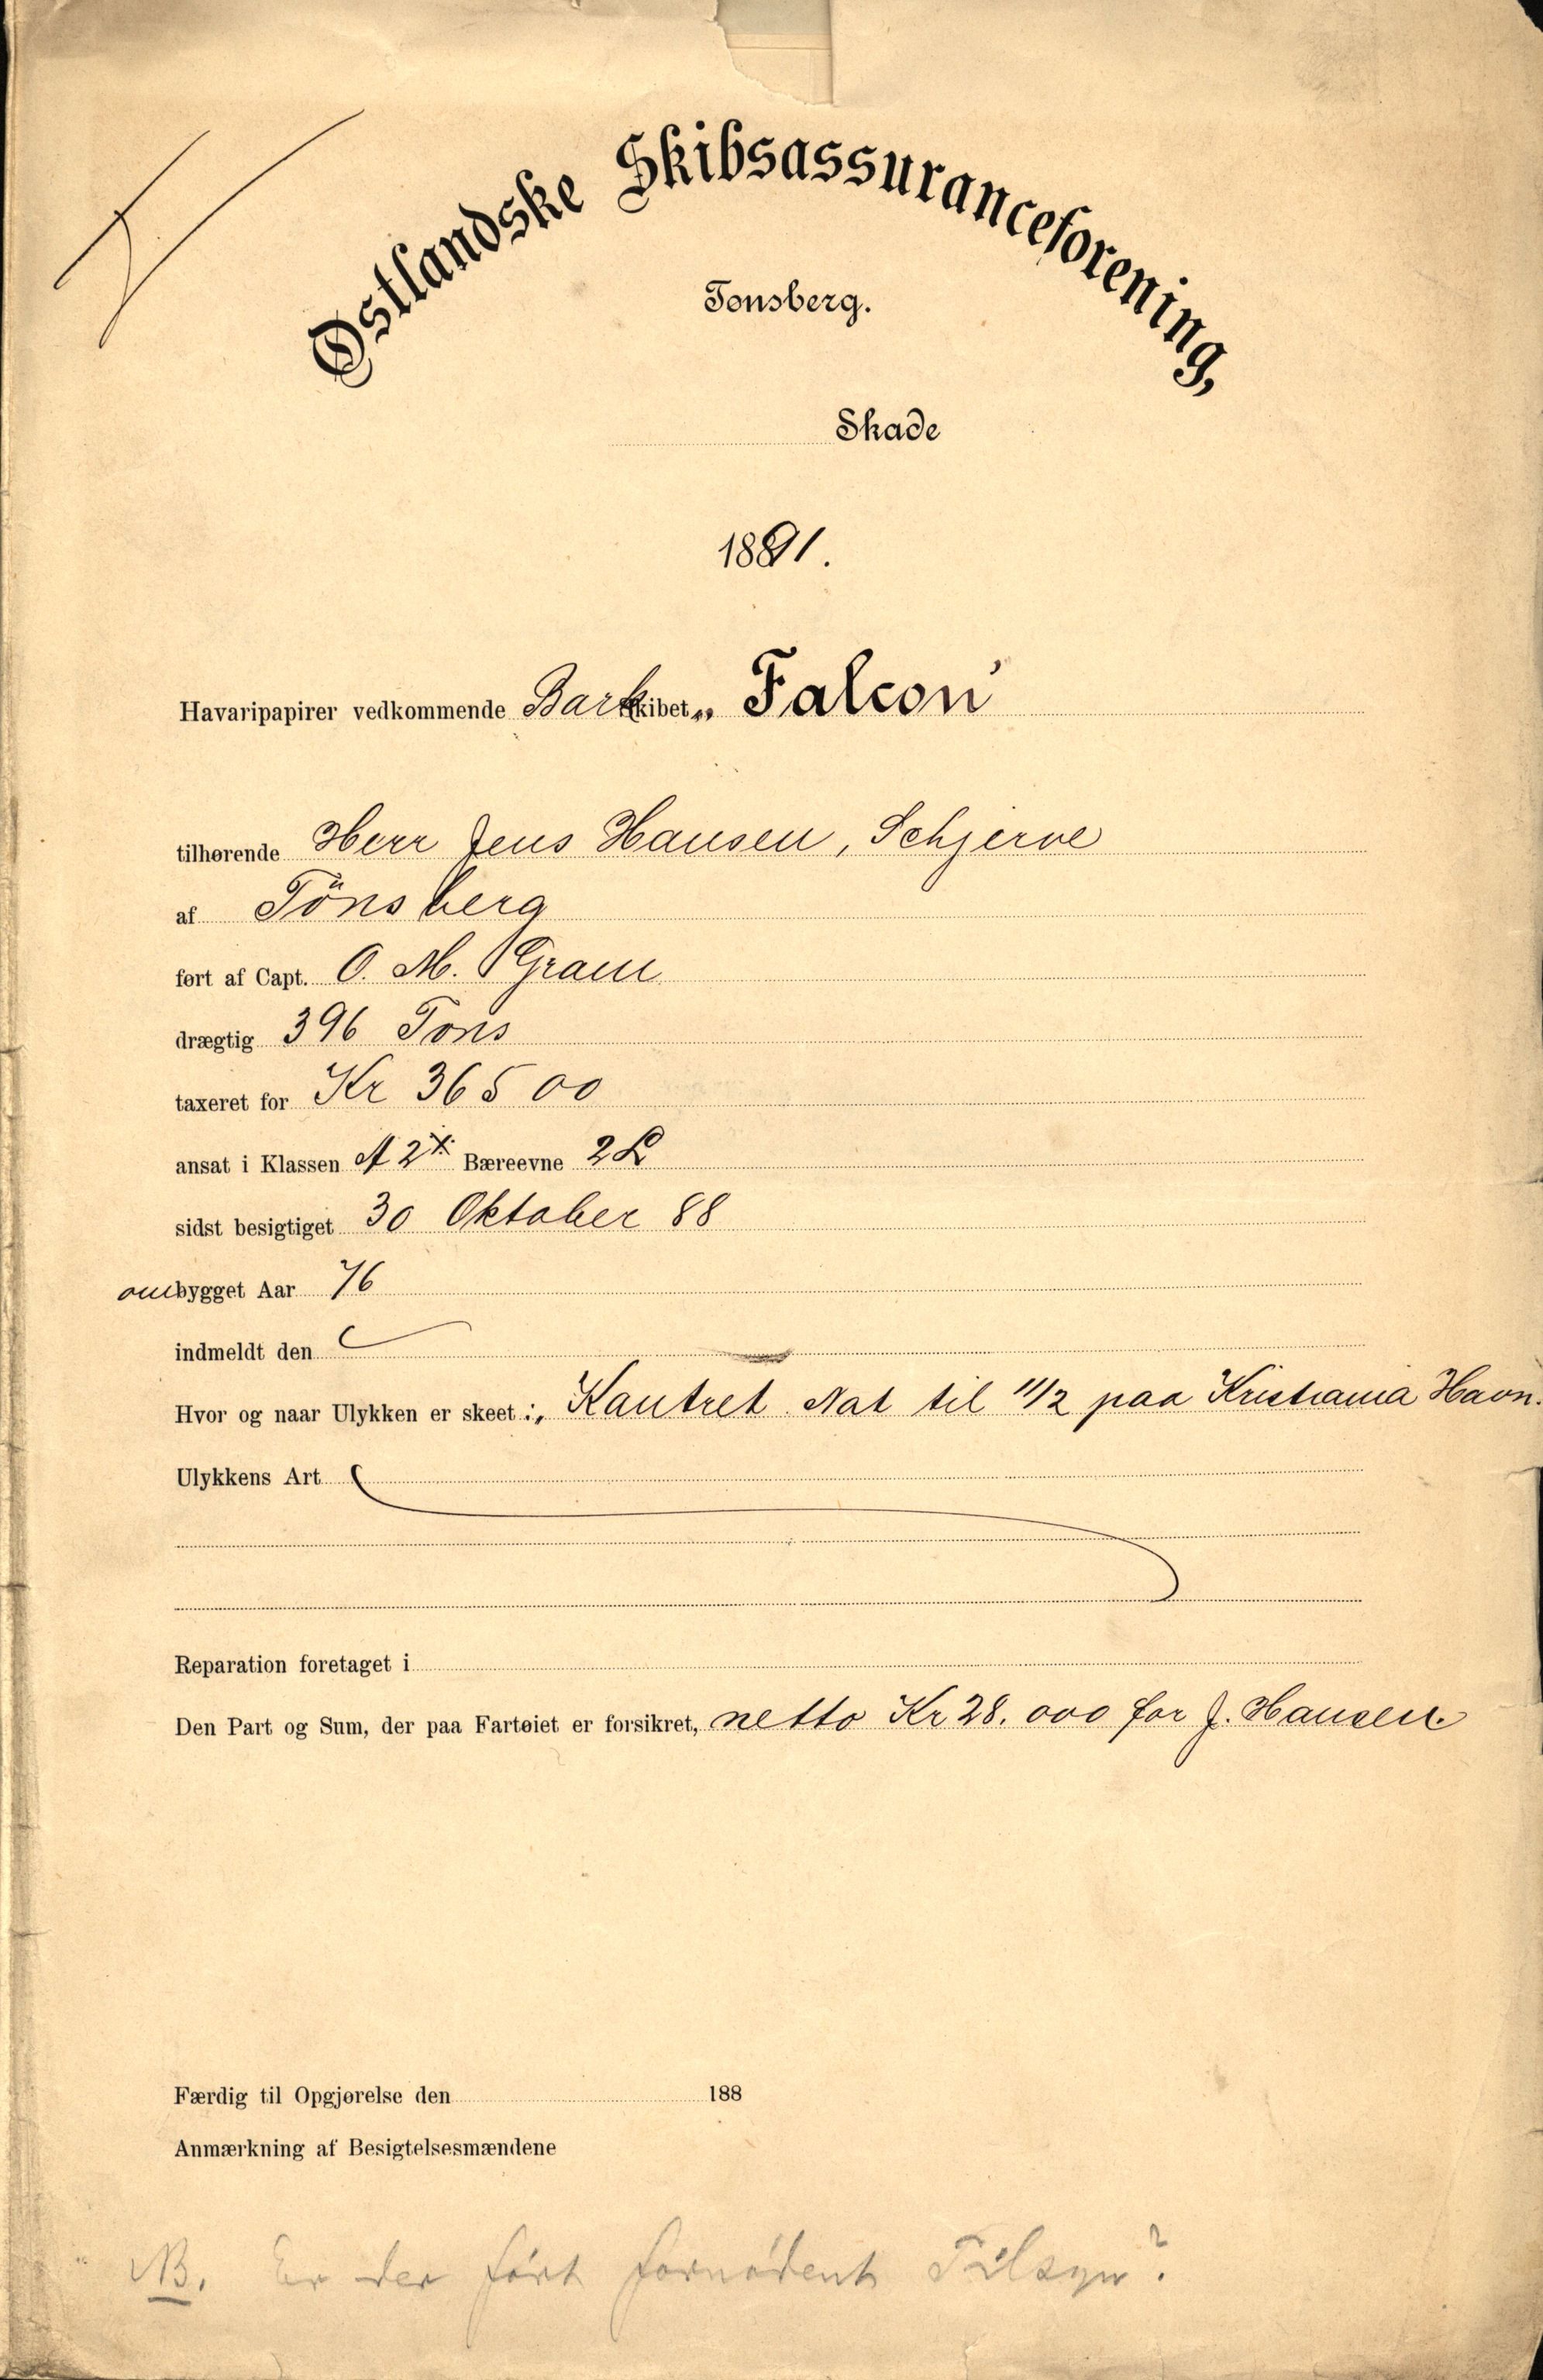 Østlandske Skibsassuranceforening,
Tønsberg.
Skade
1891.
Havaripapirer vedkommende Barkskibet „Falcon"
tilhørende Herr Jens Hansen, Schjerve
af Tönsberg
ført af Capt. O. M. Gram
drægtig 396 Tons
taxeret for Kr 36500
ansat i Klassen A 2 Bæreevne 2 L
sidst besigtiget 30 Oktober 88
ombygget Aar 76
indmeldt den
Hvor og naar Ulykken er skeet: „Kantret Nat til 11/2 paa Kristiania Havn.
Ulykkens Art
Reparation foretaget i
Den Part og Sum, der paa Fartøiet er forsikret, netto Kr 28.000 for J. Hansen.
Færdig til Opgjørelse den 188
Anmærkning af Besigtelsesmændene
NB. Er der ført fornødent Tilsyn?